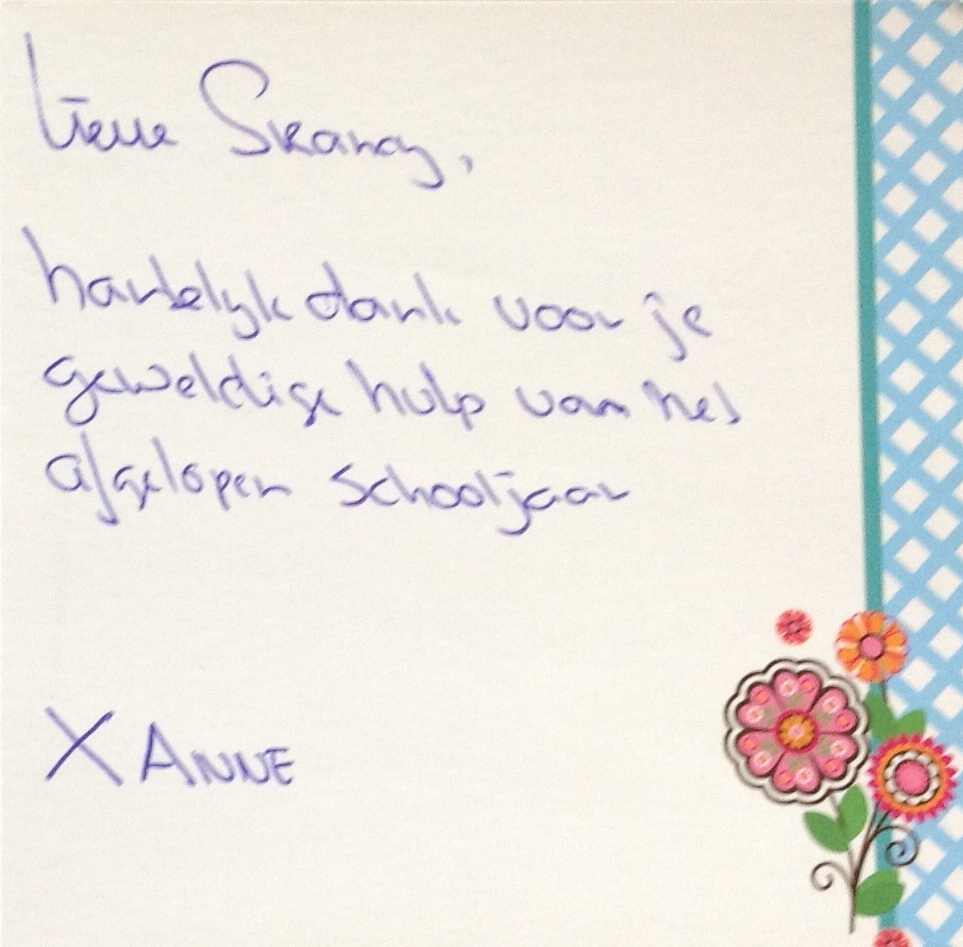 Lieve
hartelijk dank voor je
geweldige hulp van het
afgelopen schooljaar
X ANNE